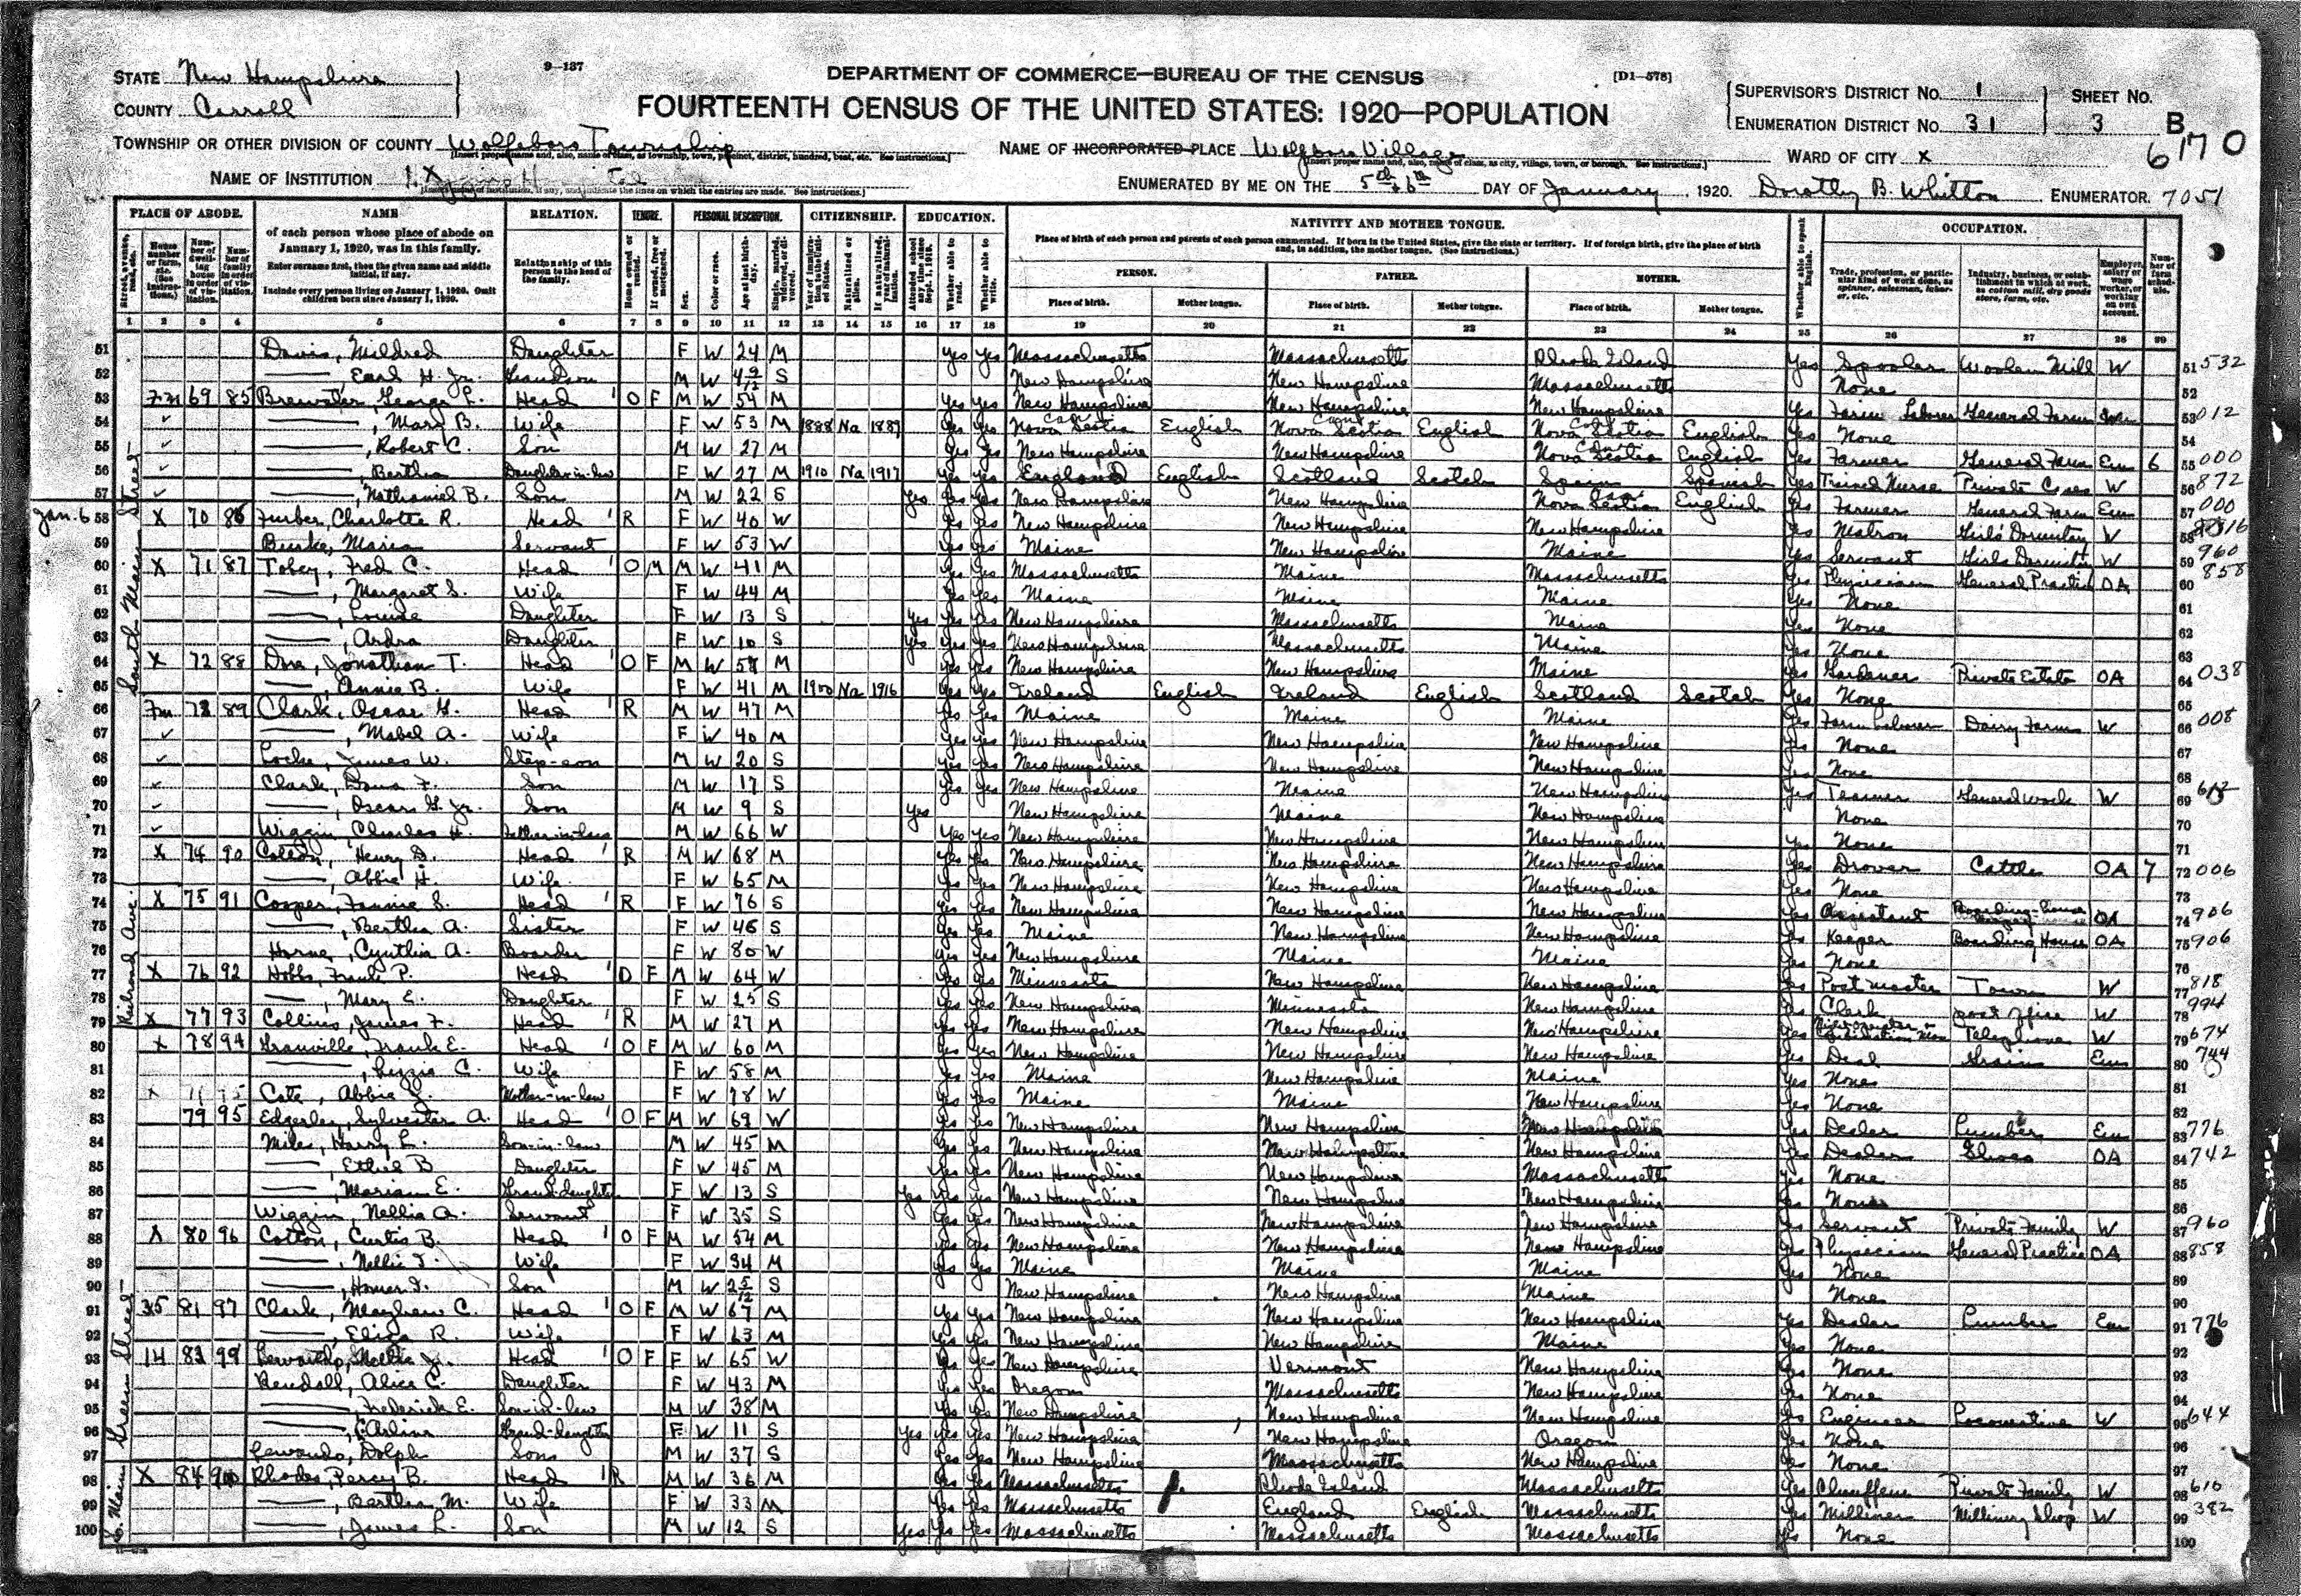 9—137
DEPARTMENT OF COMMERCE—BUREAU OF THE CENSUS
[D1—578]
FOURTEENTH CENSUS OF THE UNITED STATES: 1920—POPULATION
STATE New Hampshire
COUNTY Carroll
SUPERVISOR'S DISTRICT No. 1
ENUMERATION DISTRICT No. 31
SHEET No. 3 B
6170
TOWNSHIP OR OTHER DIVISION OF COUNTY Wolfeboro Township
NAME OF INCORPORATED PLACE Wolfeboro Village
WARD OF CITY X
NAME OF INSTITUTION X
ENUMERATED BY ME ON THE 5th + 6th DAY OF January, 1920. Dorothy B. Whitton ENUMERATOR. 7051
PLACE OF ABODE. NAME RELATION. TENURE. PERSONAL DESCRIPTION. CITIZENSHIP. EDUCATION. NATIVITY AND MOTHER TONGUE. OCCUPATION.
of each person whose place of abode on January 1, 1920, was in this family.
Enter surname first, then the given name and middle initial, if any.
Include every person living on January 1, 1920. Omit children born since January 1, 1920.
Relationship of this person to the head of the family.
Place of birth of each person and parents of each person enumerated. If born in the United States, give the state or territory. If of foreign birth, give the place of birth and, in addition, the mother tongue. (See instructions.)
PERSON. FATHER. MOTHER.
Place of birth. Mother tongue. Place of birth. Mother tongue. Place of birth. Mother tongue.
1 2 3 4 5 6 7 8 9 10 11 12 13 14 15 16 17 18 19 20 21 22 23 24 25 26 27 28 29
South Main Street
Railroad Ave.
Green Street
S. Main
Jan. 6
51 Davis, Mildred Daughter F W 24 M Yes Yes Massachusetts Massachusetts Rhode Island Yes Spooler Woolen Mill W 51 532
52 ——, Earl H. Jr. Grandson M W 4 9/12 S New Hampshire New Hampshire Massachusetts None 52
53 Fm 69 85 Brewster, George L. Head 1 O F M W 54 M Yes Yes New Hampshire New Hampshire New Hampshire Yes Farm Laborer General Farm 53 012
54 ——, Mary B. Wife F W 53 M 1888 Na 1889 Yes Yes Nova Scotia English Nova Scotia English Nova Scotia English Yes None 54
55 ——, Robert C. Son M W 27 M Yes Yes New Hampshire New Hampshire Nova Scotia English Yes Farmer General Farm Em 6 55 000
56 ——, Bertha Daughter-in-law F W 27 M 1910 Na 1917 Yes Yes England English Scotland Scotch Spain Spanish Yes Trained Nurse Private Cases W 56 872
57 ——, Nathaniel B. Son M W 22 S Yes Yes Yes New Hampshire New Hampshire Nova Scotia English Yes Farmer General Farm Em 57 000
58 X 70 86 Furber, Charlotte R. Head 1 R F W 40 W Yes Yes New Hampshire New Hampshire New Hampshire Yes Matron Girls Dormitory W 58
59 Burke, Maria Servant F W 53 W Yes Yes Maine New Hampshire Maine Yes Servant Girls Dormitory W 59 960
60 X 71 87 Tobey, Fred C. Head 1 O M M W 41 M Yes Yes Massachusetts Maine Massachusetts Yes Physician General Practice OA 60 858
61 ——, Margaret S. Wife F W 44 M Yes Yes Maine Maine Maine Yes None 61
62 ——, Louise Daughter F W 13 S Yes Yes Yes New Hampshire Massachusetts Maine Yes None 62
63 ——, Ardra Daughter F W 10 S Yes Yes Yes New Hampshire Massachusetts Maine Yes None 63
64 X 72 88 Dore, Jonathan T. Head 1 O F M W M Yes Yes New Hampshire New Hampshire Maine Yes Gardener Private Estate OA 64 038
65 ——, Annie B. Wife F W 41 M 1900 Na 1916 Yes Yes Ireland English Ireland English Scotland Scotch Yes None 65
66 Fm 73 89 Clark, Oscar G. Head 1 R M W 47 M Yes Yes Maine Maine Maine Yes Farm Laborer Dairy Farm W 66 008
67 ——, Mabel A. Wife F W 40 M Yes Yes New Hampshire New Hampshire New Hampshire Yes None 67
68 Locke, James W. Step-son M W 20 S Yes Yes New Hampshire New Hampshire New Hampshire Yes None 68
69 Clark, Dona F. Son M W 17 S Yes Yes New Hampshire Maine New Hampshire Yes Teamer General work W 69
70 ——, Oscar G. Jr. Son M W 9 S Yes New Hampshire Maine New Hampshire None 70
71 Wiggin, Charles H. Father-in-law M W 66 W Yes Yes New Hampshire New Hampshire New Hampshire Yes None 71
72 X 74 90 Henry D. Head 1 R M W 68 M Yes Yes New Hampshire New Hampshire New Hampshire Yes Drover Cattle OA 7 72 006
73 ——, Abbie H. Wife F W 65 M Yes Yes New Hampshire New Hampshire New Hampshire Yes None 73
74 X 75 91 Cooper, Fannie S. Head 1 R F W 76 S Yes Yes New Hampshire New Hampshire New Hampshire Yes Assistant Boarding-house OA 74 906
75 ——, Bertha A. Sister F W 46 S Yes Yes Maine New Hampshire New Hampshire Yes Keeper Boarding House OA 75 906
76 Horne, Cynthia A. Boarder F W 80 W Yes Yes New Hampshire Maine Maine Yes None 76
77 X 76 92 Hobbs, Frank P. Head 1 O F M W 64 W Yes Yes Minnesota New Hampshire New Hampshire Yes Post master Town W 77 818
78 ——, Mary E. Daughter F W 25 S Yes Yes New Hampshire Minnesota New Hampshire Yes Clerk post office W 78 994
79 X 77 93 Collins, James F. Head 1 R M W 27 M Yes Yes New Hampshire New Hampshire New Hampshire Yes Telephone W 79 674
80 X 78 94 Granville, Frank E. Head 1 O F M W 60 M Yes Yes New Hampshire New Hampshire New Hampshire Yes Deal Grain Em 80 744
81 ——, Lizzie C. Wife F W 58 M Yes Yes Maine New Hampshire Maine Yes None 81
82 X Cate, Abbie Mother-in-law F W 78 W Yes Yes Maine Maine New Hampshire Yes None 82
83 79 95 Edgerley, Sylvester A. Head 1 O F M W 69 W Yes Yes New Hampshire New Hampshire New Hampshire Yes Dealer Lumber Em 83 776
84 Miles, Harry L. Son-in-law M W 45 M Yes Yes New Hampshire New Hampshire New Hampshire Yes Dealer Shoes OA 84 742
85 ——, Ethel B Daughter F W 45 M Yes Yes New Hampshire New Hampshire Massachusetts Yes None 85
86 ——, Marian E. Grand-daughter F W 13 S Yes Yes Yes New Hampshire New Hampshire New Hampshire Yes None 86
87 Wiggin, Nellie A. Servant F W 35 S Yes Yes New Hampshire New Hampshire New Hampshire Yes Servant Private Family W 87 960
88 X 80 96 Cotton, Curtis B. Head 1 O F M W 54 M Yes Yes New Hampshire New Hampshire New Hampshire Yes Physician General Practice OA 88 858
89 ——, Nellie I. Wife F W 34 M Yes Yes Maine Maine Maine Yes None 89
90 ——, Homer I. Son M W 2 5/12 S New Hampshire New Hampshire Maine None 90
91 35 81 97 Clark, Mayhew C. Head 1 O F M W 67 M Yes Yes New Hampshire New Hampshire New Hampshire Yes Dealer Lumber Em 91 776
92 ——, Eliza R. Wife F W 63 M Yes Yes New Hampshire New Hampshire Maine Yes None 92
93 14 83 99 Head 1 O F F W 65 W Yes Yes New Hampshire Vermont New Hampshire Yes None 93
94 Kendall, Alice C. Daughter F W 43 M Yes Yes Oregon Massachusetts New Hampshire Yes None 94
95 ——, Frederick E. Son-in-law M W 38 M Yes Yes New Hampshire New Hampshire New Hampshire Yes Engineer Locomotive W 95 644
96 ——, Arline Grand-daughter F W 11 S Yes Yes Yes New Hampshire New Hampshire Oregon Yes None 96
97 Dolph Son M W 37 S Yes Yes New Hampshire Massachusetts New Hampshire Yes None 97
98 X 84 100 Rhodes, Percy B. Head 1 R M W 36 M Yes Yes Massachusetts Rhode Island Massachusetts Yes Chauffeur Private Family W 98 616
99 ——, Bertha M. Wife F W 33 M Yes Yes Massachusetts England English Massachusetts Yes Milliner Millinery Shop W 99 382
100 ——, James L. Son M W 12 S Yes Yes Yes Massachusetts Massachusetts Massachusetts Yes None 100